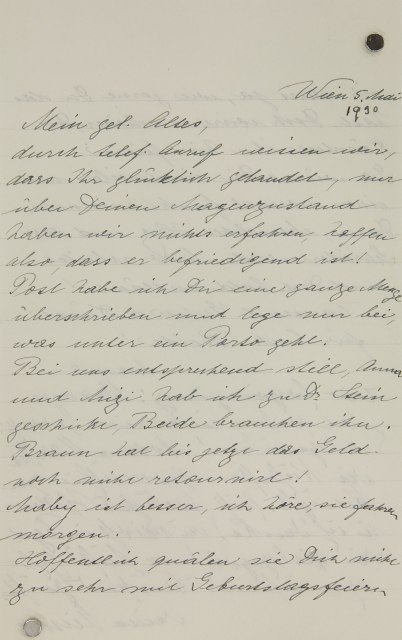 Wien 5. Mai
1930
Mein gel. Altes,
durch telef. Anruf wissen wir,
dass Ihr glücklich gelandet, nur
über Deinen Magenzustand
haben wir nichts erfahren, hoffen
also, dass er befriedigend ist!
Post habe ich Dir eine ganze Menge
überschrieben und lege nur bei,
was unter ein Porto geht.
Bei uns entsprechend still, Anna
und Mizi hab ich zu Dr. Stein
geschickt, Beide brauchen ihn.
Braun hat bis jetzt das Geld
noch nicht retournirt!
Maby ist besser, ich höre, sie fahren
morgen.
Hoffentlich quälen sie Dich nicht
zu sehr mit Geburtstagsfeiern